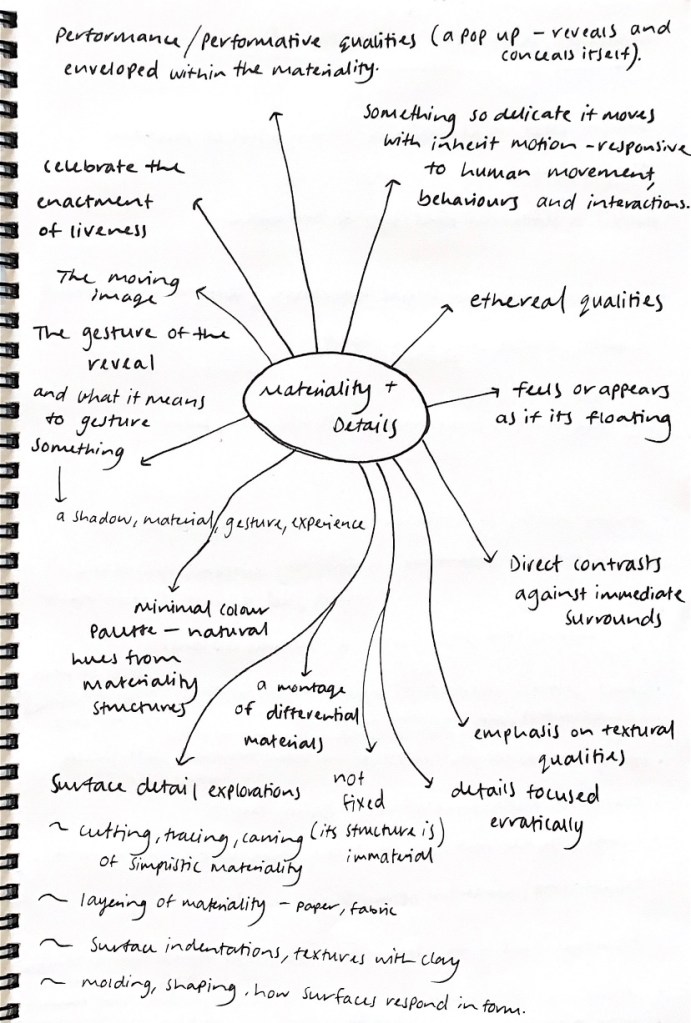 Performance/performative qualities (a pop up - reveals and
conceals itself).
enveloped within the materiality.
Something so delicate it moves
with inherit motion - responsive
to human movement,
behaviours and interactions.
celebrate the
enactment
of liveness
The moving
image
ethereal qualities
The gesture of the
reveal
and what it means
to gesture
something
Materiality +
Details
feels or appears
as if its floating
a shadow, material, gesture, experience
Direct contrasts
against immediate
surrounds
minimal colour
palette - natural
hues from
materiality
structures
a montage
of differential
materials
emphasis on textural
qualities
not
fixed
(its structure is)
immaterial
details focused
erratically
Surface detail explorations
~ cutting, tracing, carving
of simplistic materiality
~ layering of materiality - paper, fabric
~ Surface indentations, textures with clay
~ molding, shaping. how surfaces respond in form.